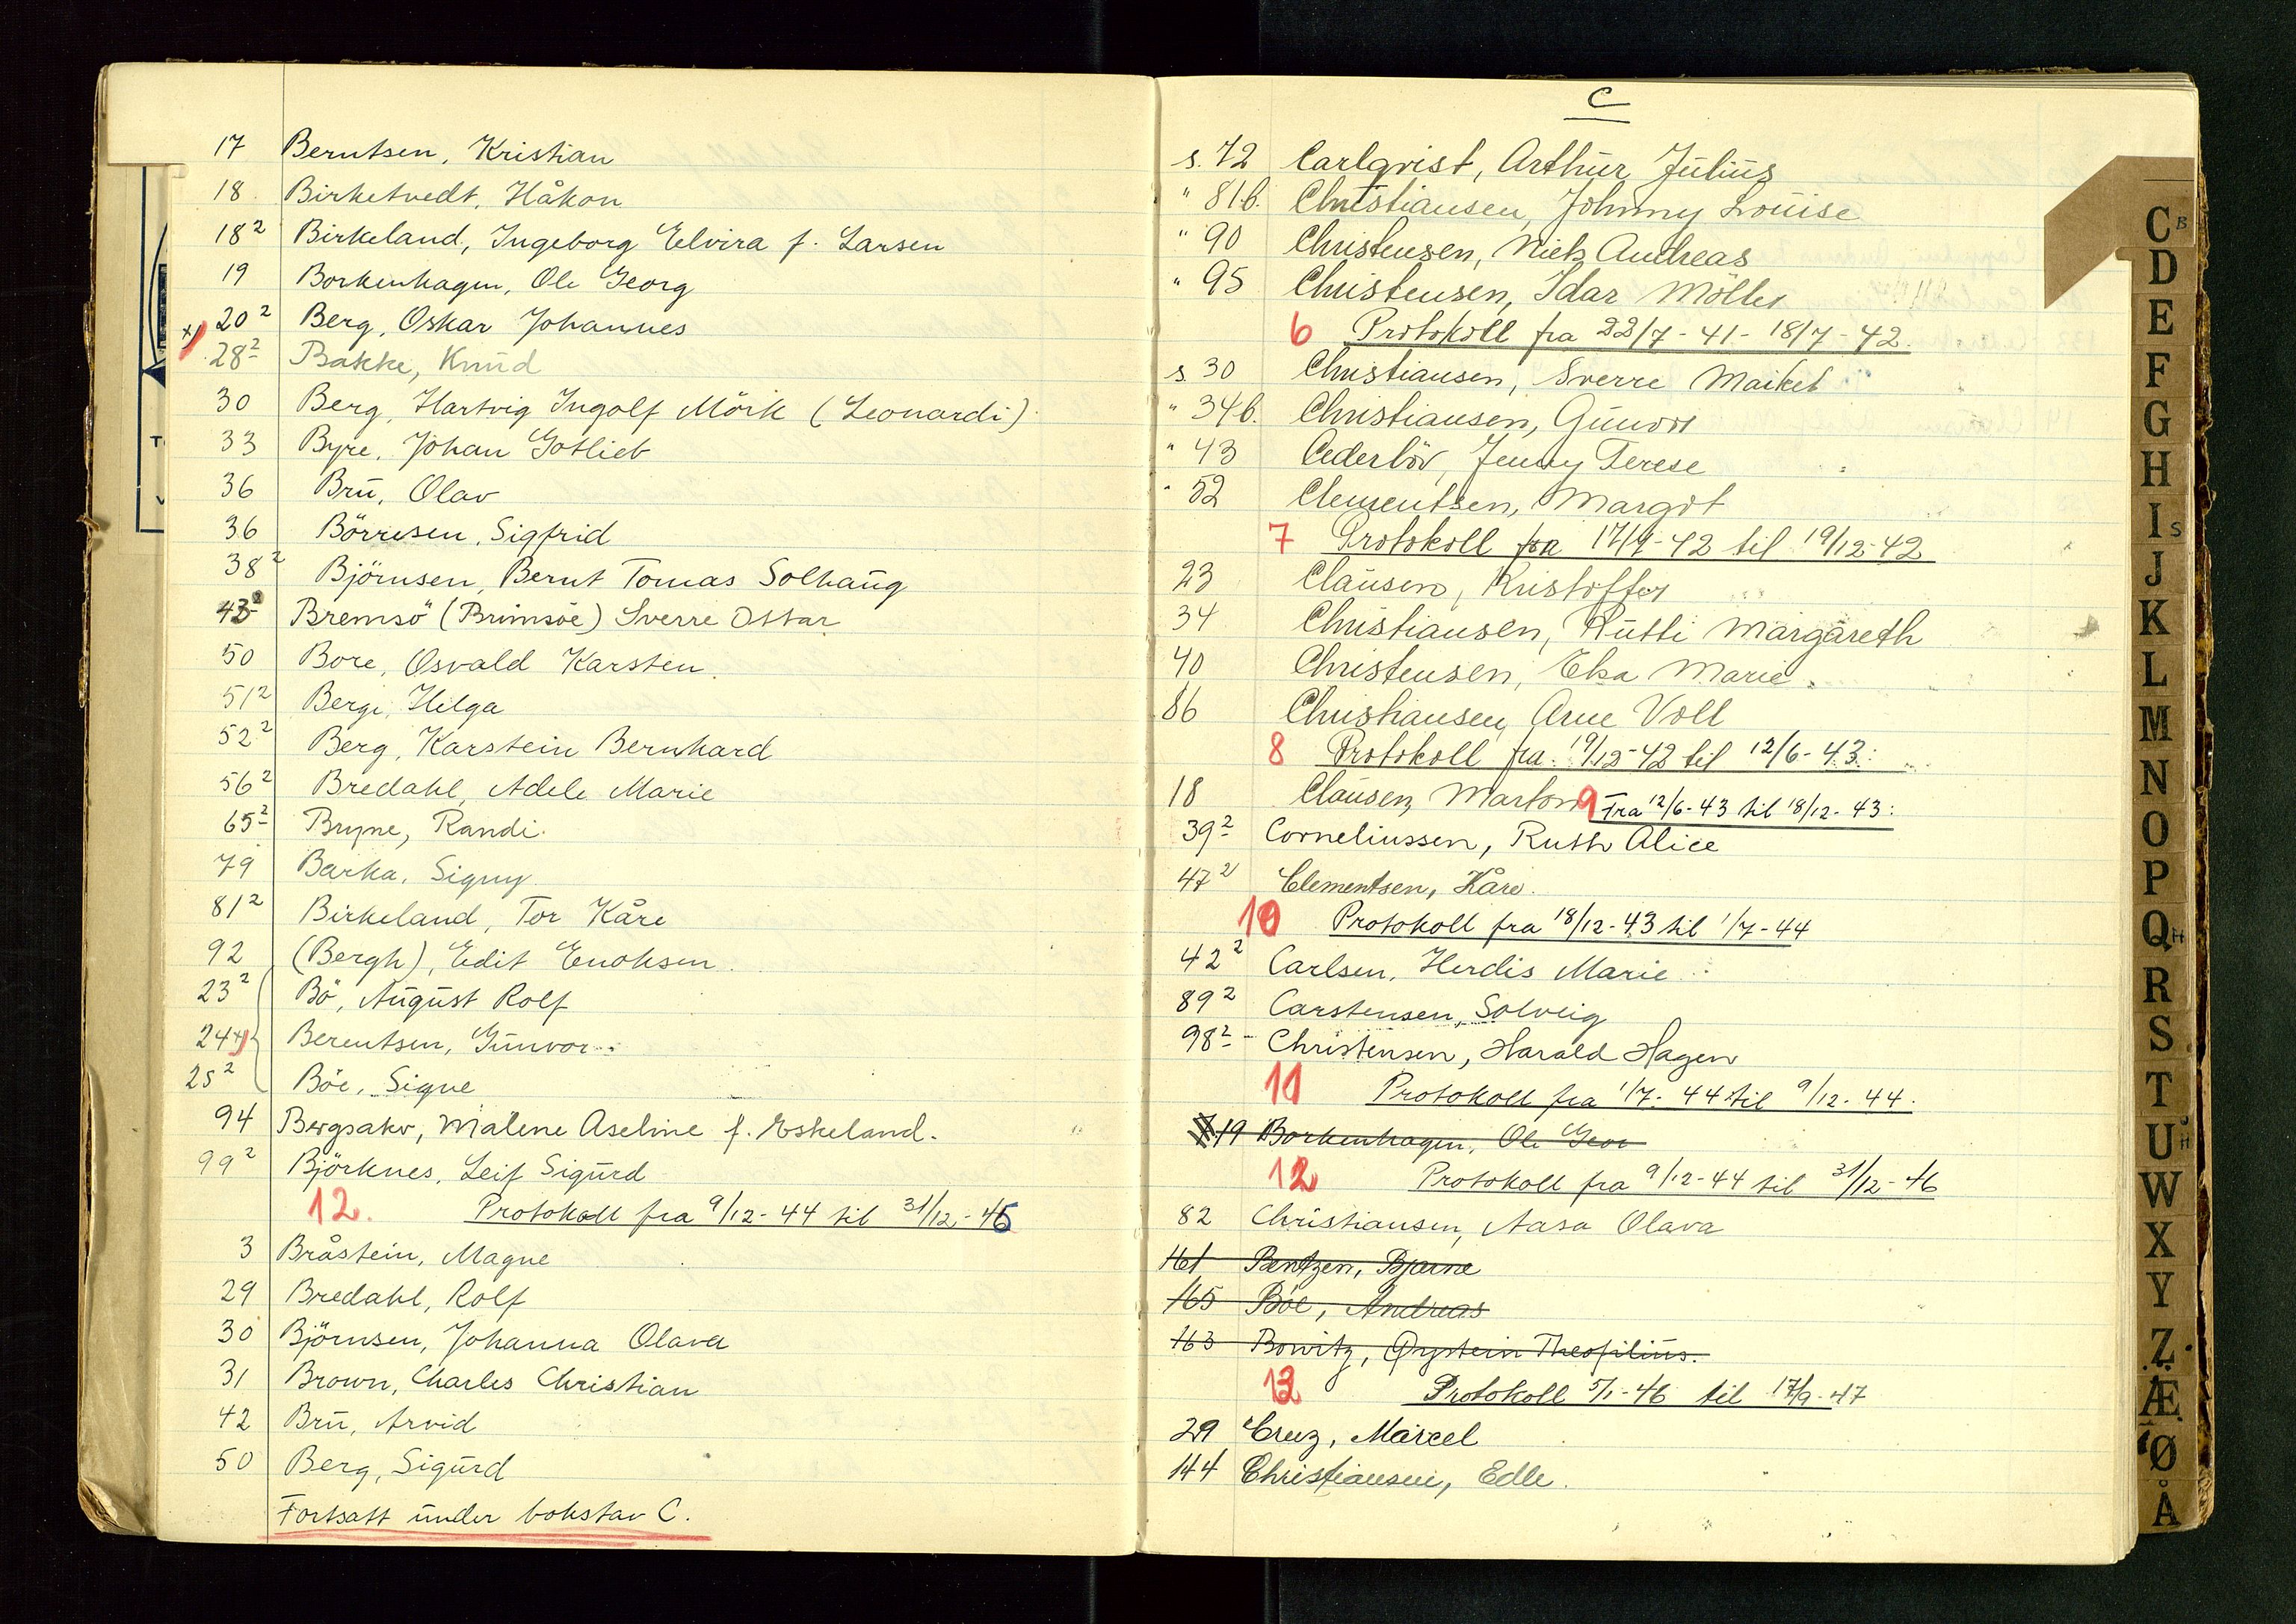 17 Berntsen, Kristian
18 Birketvedt, Håkon
18² Birkeland, Ingeborg Elvira f. Larsen
19 Borkenhagen, Ole Georg
x) 20² Berg, Oskar Johannes
28² Bakke, Knud
30 Berg, Hartvig Ingolf Mörk (Leonardi)
33 Byre, Johan Gotlieb
36 Brū, Olav
36 Börresen, Sigfrid
38² Björnsen, Bernt Tomas Solhaūg
43² Bremsö (Brimsöe) Sverre Ottar
50 Bore, Osvald Karsten.
51² Berge, Helga
52² Berg, Karstein Bernhard
56² Bredahl, Adele Marie
65² Bryne, Randi.
79 Barka, Signy
81² Birkeland, Tor Kåre
92 (Bergh), Edit Enoksen.
23² Bö, Aūgūst Rolf
24 x) Berentsen, Gūnvor.
25² Böe, Signe
94 Bergsaker, Malene Aseline f. Eskeland.
99² Björknes, Leif Sigūrd
12. Protokoll fra 9/12-44 til 31/12-45
3 Bråstein, Magne
29 Bredahl, Rolf
30 Björnsen, Johanna Olava
31 Brown, Charles Christian
42 Brū, Arvid
50 Berg, Sigūrd
Fortsatt ūnder bokstav C.
C
s. 72 Carlqvist, Arthūr Jūliūs
" 81.b. Christiansen, Johnny Loūise
" 90 Christensen, Niels Andreas
" 95 Christensen, Idar Möller
6 Protokoll fra 22/7-41 - 18/7-42.
s. 30 Christiansen, Sverre Maikel
" 34b. Christiansen, Gūnvor
" 43 Cederlöv, Jenny Terese
" 52 Clementsen, Margot
7 Protokoll fra 17/7-42 til 19/12-42
23 Claūsen, Kristoffer
34 Christiansen, Rūtti Margareth
40 Christensen, Elsa Marie.
86 Christiansen, Arne Voll
8 Protokoll fra 19/12-42 til 12/6-43.
18 Claūsen, Marton 9 Fra 12/6-43 til 18/12-43:
39² Corneliussen, Ruth Alice
47² Clementsen, Kåre.
10 Protokoll fra 18/12-43 til 1/7-44
42² Carlsen, Herdis Marie
89² Carstensen, Solveig
98² - Christensen, Harald Hagen
11 Protokoll fra 1/7-44 til 9/12-44.
19 Borkenhagen, Ole Geor
12 Protokoll fra 9/12-44 til 31/12-46
82 Christiansen, Aasa Olava
161 Bentzen, Bjarne
165 Böe, Andreas
163 Bowitz, Øystein Theofiliūs.
13 Protokoll 5/1-46 til 17/9-47
29 Creuz, Marcel
144 Christiansen, Edle.
C B
D
E
F
G
H
I S
J
K
L
M
N
O
P
Q H
R
S
T
U H
W
X
Y
Z
Æ
Ø
Å